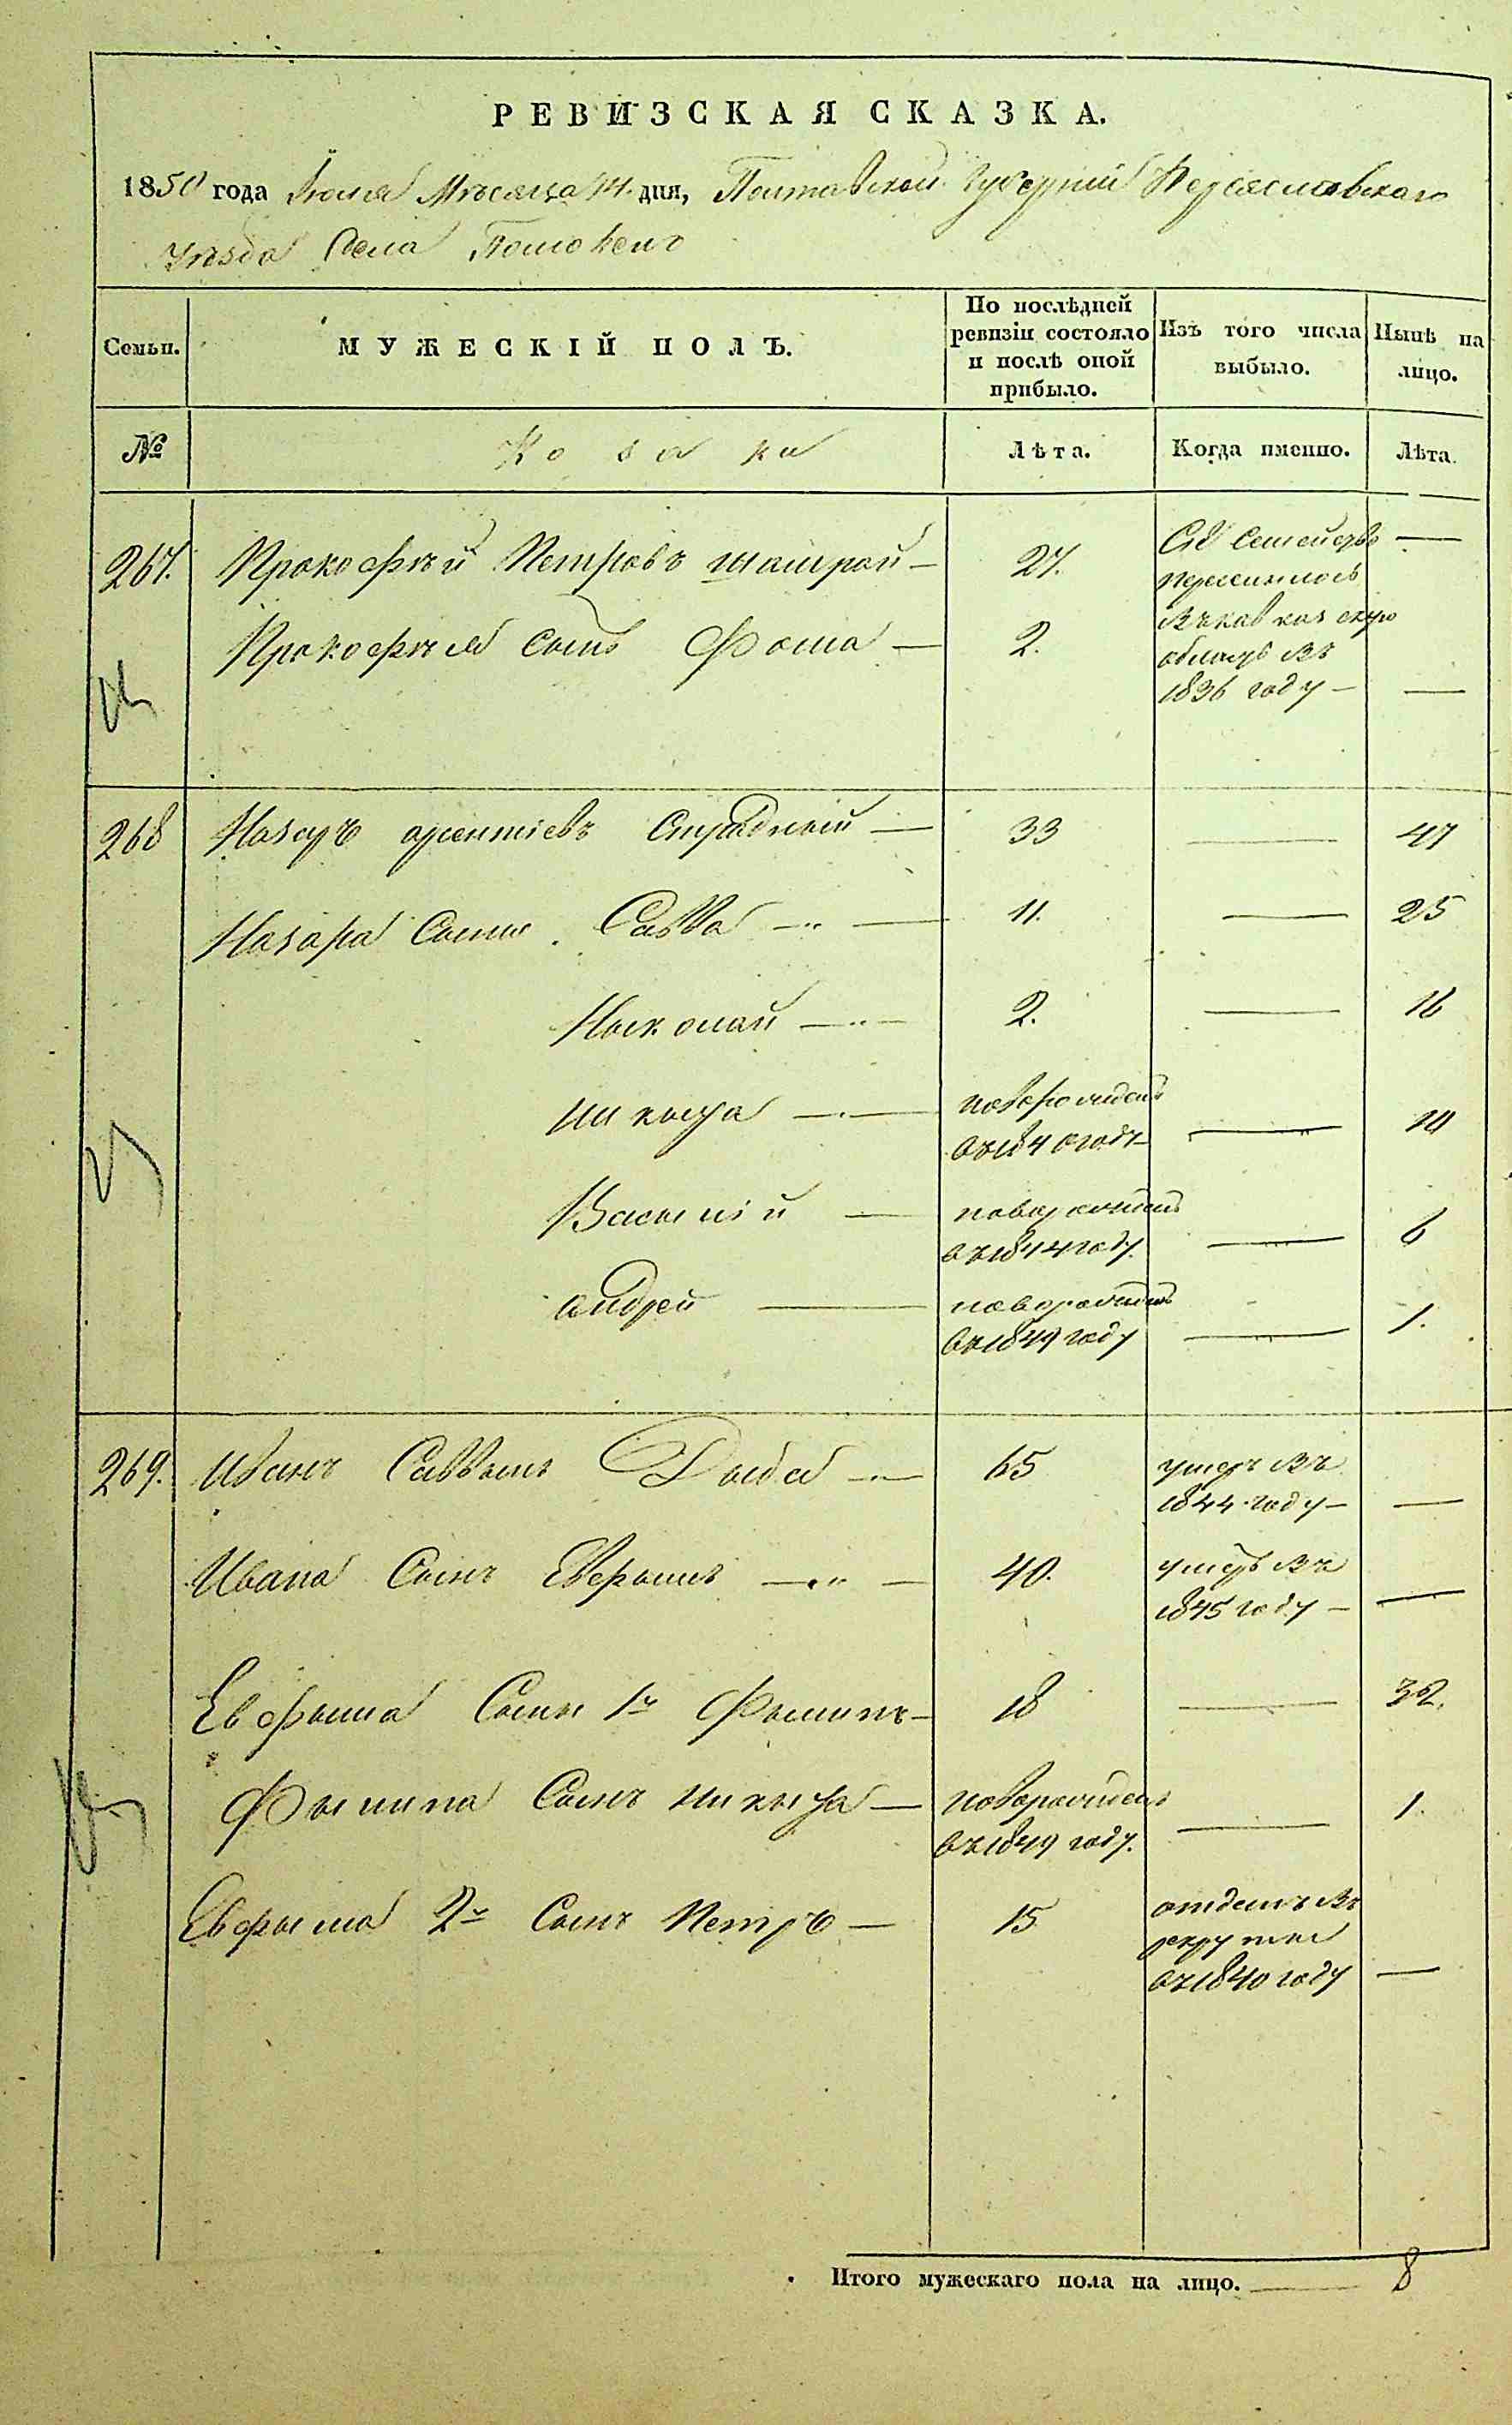 РЕВИЗСКАЯ СКАЗКА.
1850 года Іюля Мѣсяца 14 дня, Полтавской Губерніи Переяславскаго
Уѣзда Села
Семьи.
МУЖЕСКІЙ ПОЛЪ.
По послѣдней
ревизіи состояло
и послѣ оной
прибыло.
Изъ того числа
выбыло.
Нынѣ на
лицо.
№
Козаки
Лѣта.
Когда именно.
Лѣта.
267. Прокофѣй Петровъ — 27. Съ Семейством —
переселилось
Прокофѣя Сынъ Фома — 2. въ кавказскую
область въ
1836 году — —
268 Назаръ Страдный — 33 — 47
Назара Сыны. Савва — 11. — 25
Николай — 2. — 16
Никыта — новорожденъ
въ 1840 году — 10
Василій — новорожденъ
въ 1844 году. — 6
андрей — новорожденъ
въ 1849 году — 1.
269. Иванъ Саввынъ Дыба — 65 умеръ въ
1844 году — —
Ивана Сынъ Ефрымъ — 40. умеръ въ
1845 году — —
Ефрыма Сыны 1й Фылипъ — 18 — 32.
Фылипа Сынъ Никыта — новорожденъ
въ 1849 году. — 1.
Ефрыма 2й Сынъ Петръ — 15 отданъ въ
рекруты
въ 1840 году —
Итого мужескаго пола на лицо. — 8